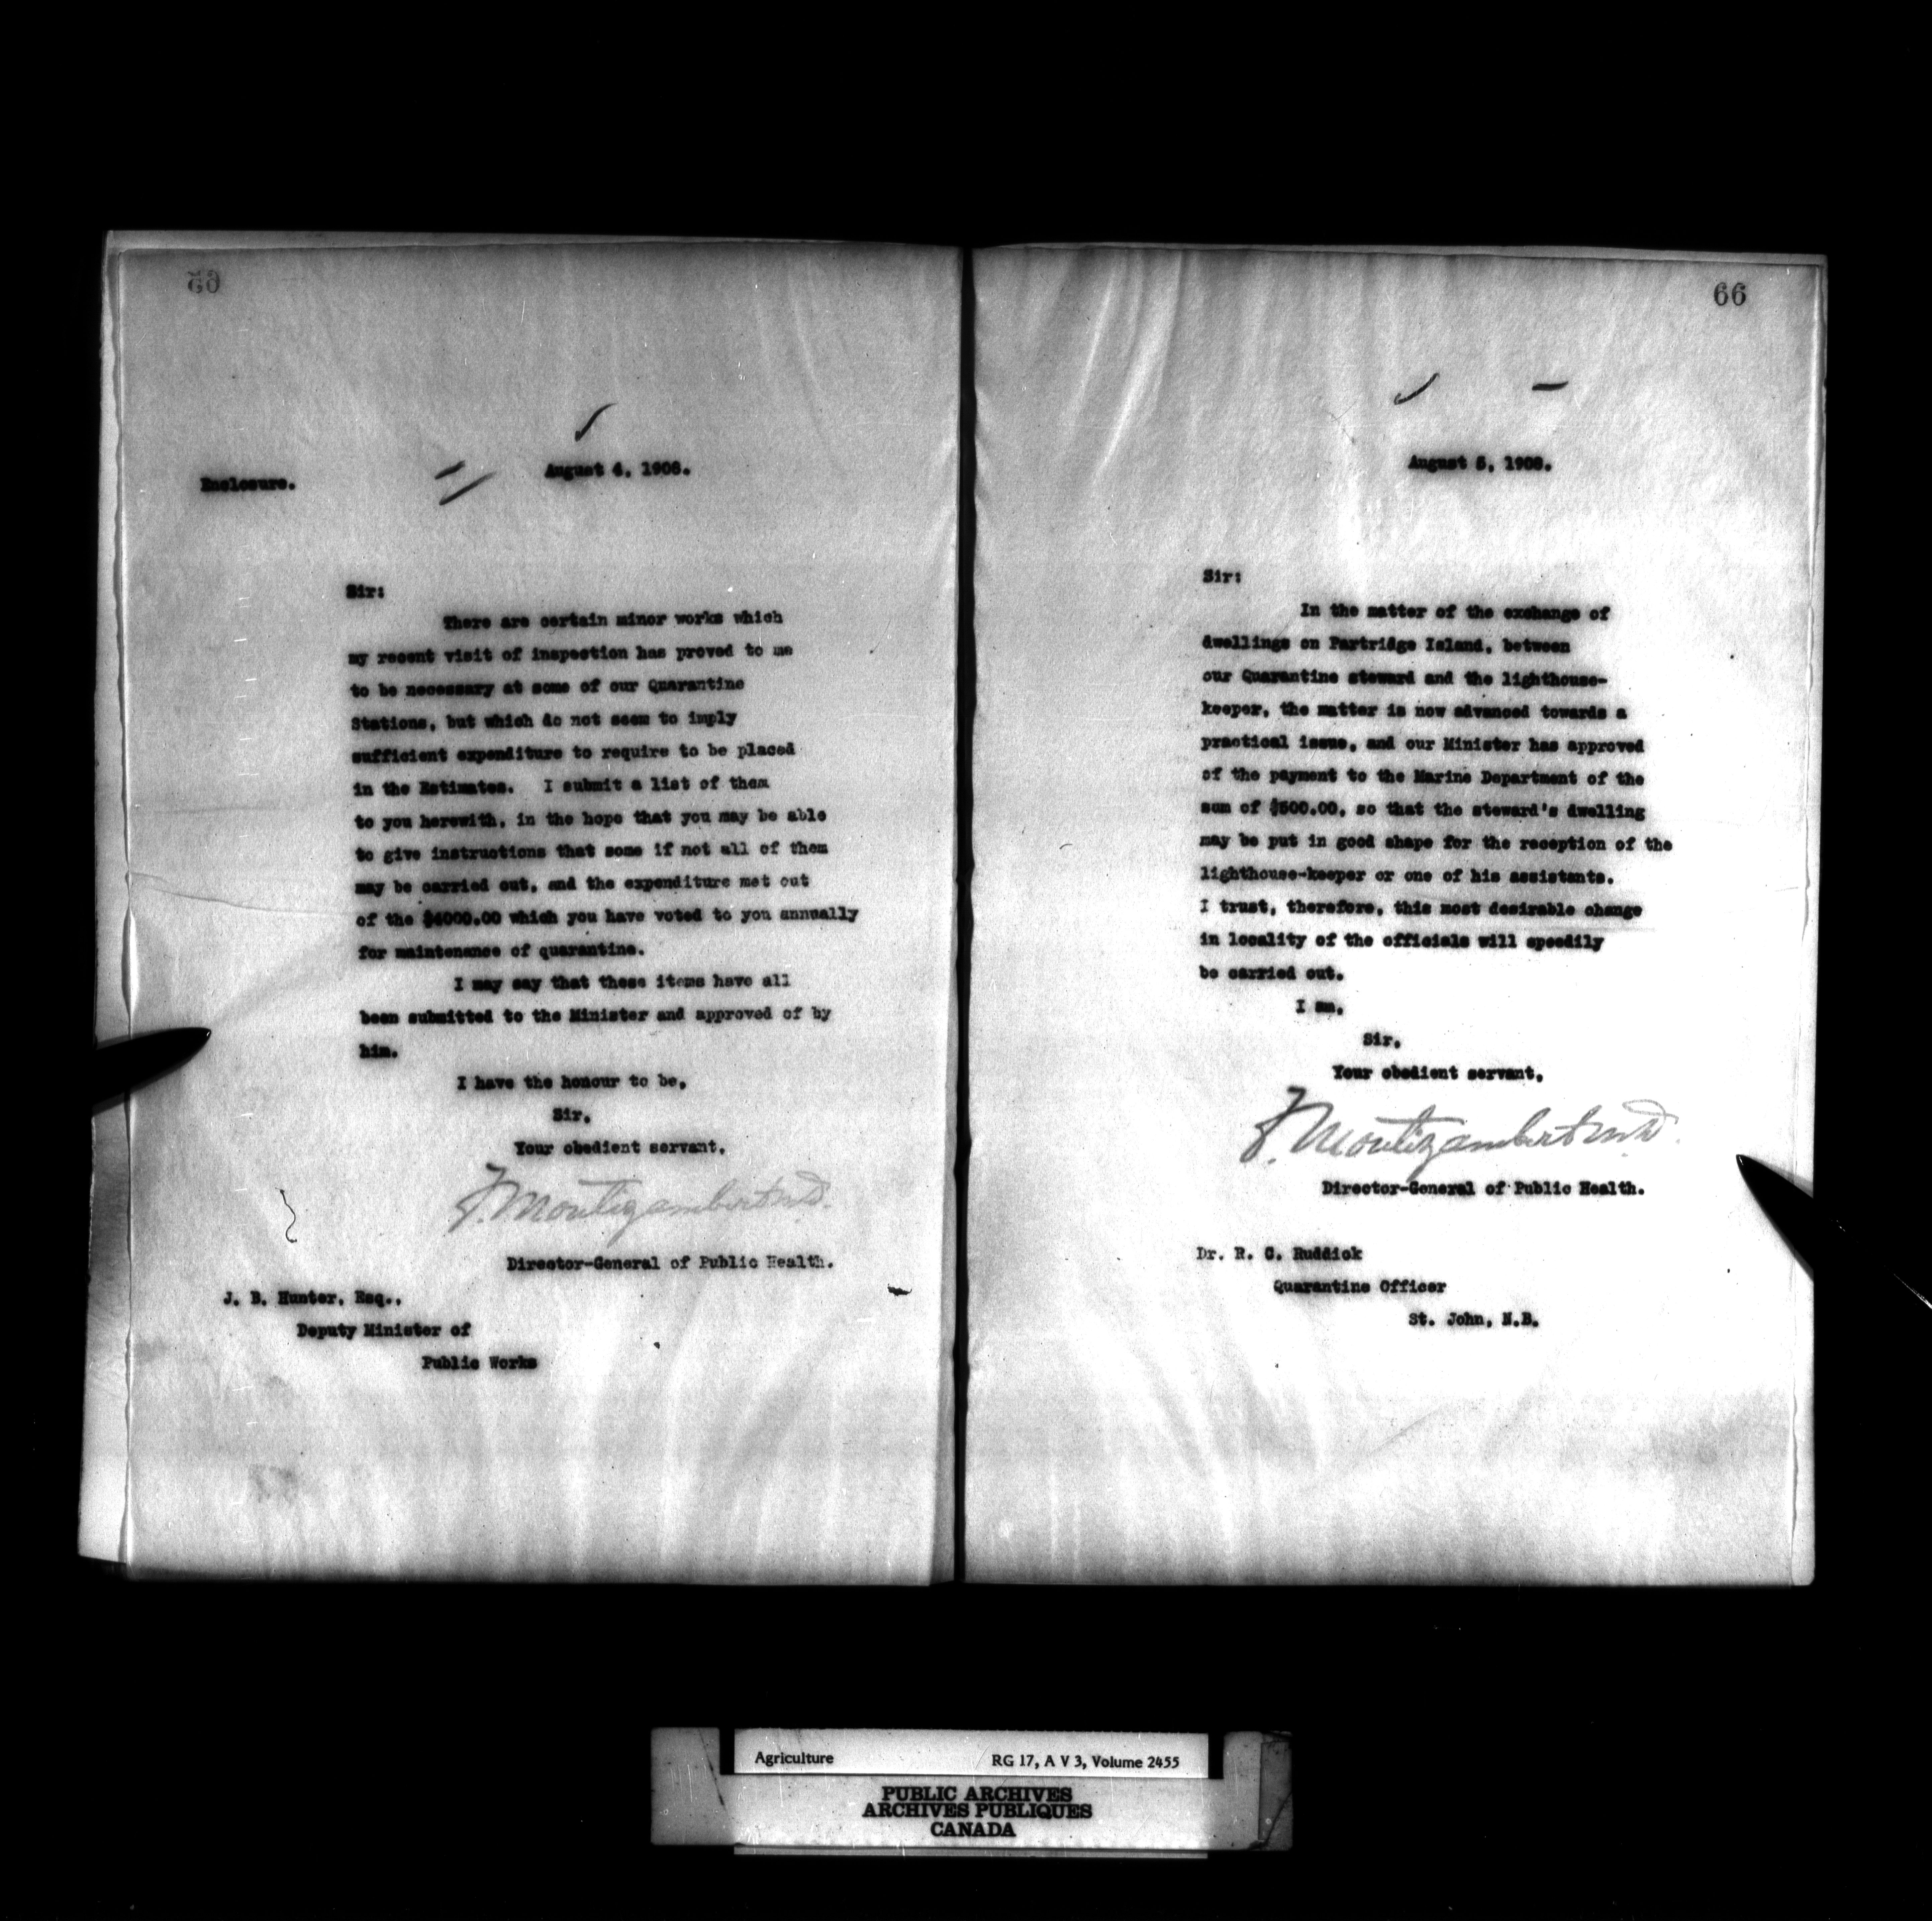 65
Enclosure.
August 4, 1908.
Sir:
There are certain minor works which
my recent visit of inspection has proved to me
to be necessary at some of our Quarantine
Stations, but which do not seem to imply
sufficient expenditure to require to be placed
in the Estimates. I submit a list of them
to you herewith, in the hope that you may be able
to give instructions that some if not all of them
may be carried out, and the expenditure met out
of the $4000.00 which you have voted to you annually
for maintenance of quarantine.
I may say that these items have all
been submitted to the Minister and approved of by
him.
I have the honour to be,
Sir,
Your obedient servant,
F. Montizambert M.D.
Director-General of Public Health.
J. B. Hunter, Esq.,
Deputy Minister of
Public Works
66
August 5, 1908.
Sir:
In the matter of the exchange of
dwellings on Partridge Island, between
our Quarantine steward and the lighthouse-
keeper, the matter is now advanced towards a
practical issue, and our Minister has approved
of the payment to the Marine Department of the
sum of $500.00, so that the steward's dwelling
may be put in good shape for the reception of the
lighthouse-keeper or one of his assistants.
I trust, therefore, this most desirable change
in locality of the officials will speedily
be carried out.
I am,
Sir,
Your obedient servant,
F. Montizambert M.D.
Director-General of Public Health.
Dr. R. C. Ruddick
Quarantine Officer
St. John, N.B.
Agriculture RG 17, A V 3, Volume 2455
PUBLIC ARCHIVES
ARCHIVES PUBLIQUES
CANADA